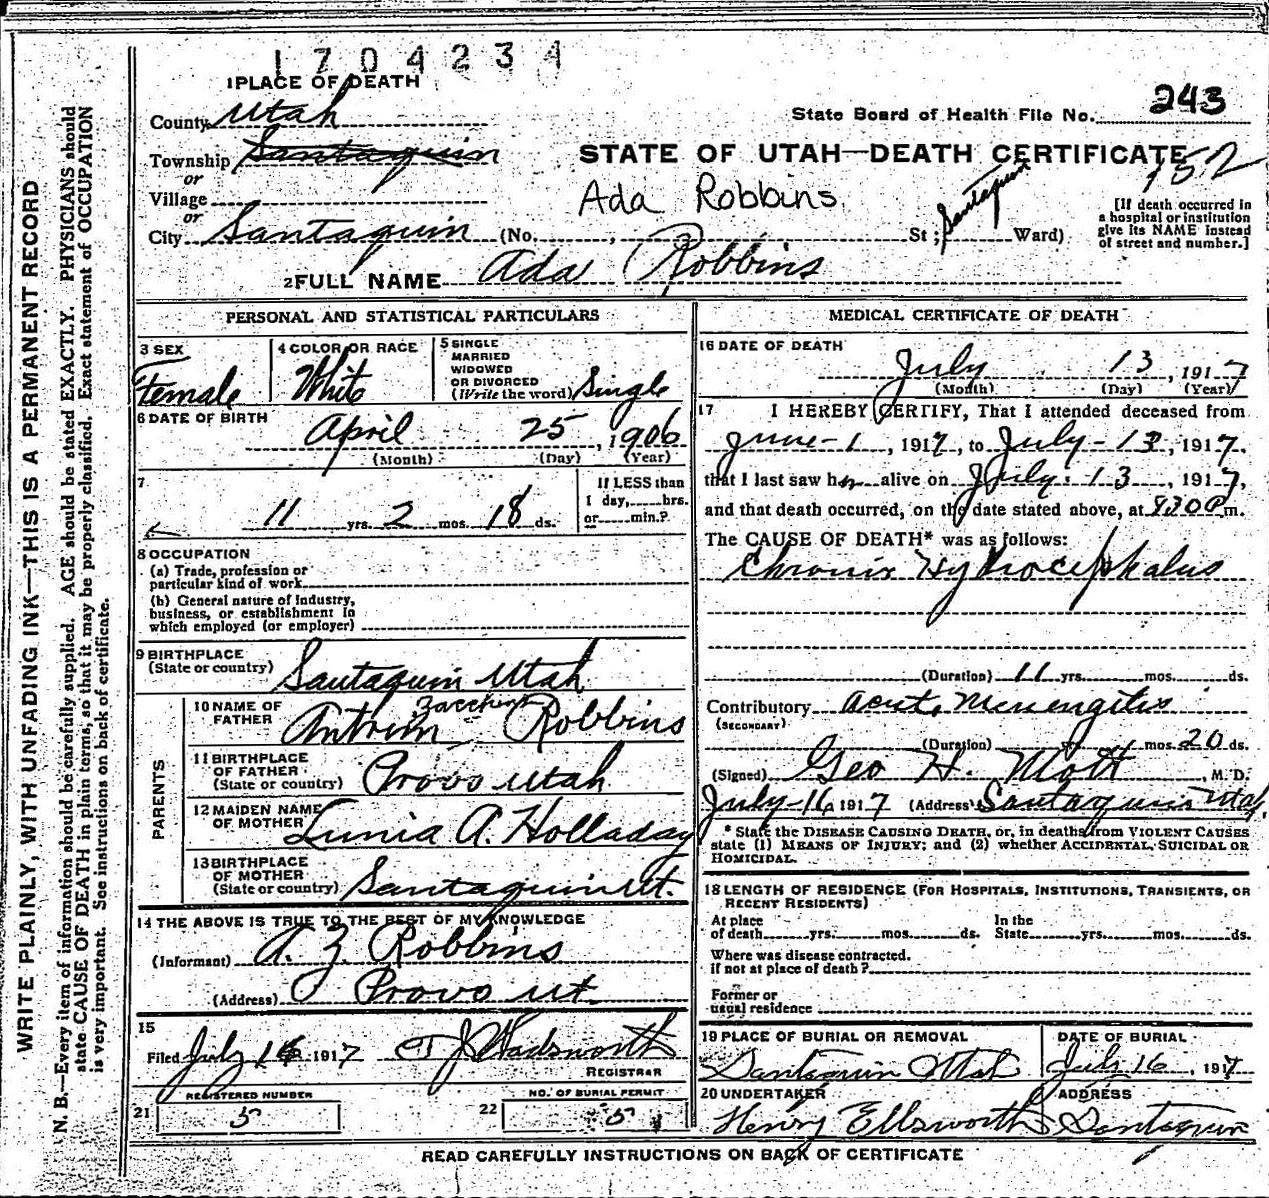 1704234
1 PLACE OF DEATH
County Utah
State Board of Health File No. 243
Township Santaquin
STATE OF UTAH—DEATH CERTIFICATE
152
or
Village
Ada Robbins
or
City Santaquin (No. , St; Santaquin Ward)
[If death occurred in
a hospital or institution
give its NAME instead
of street and number.]
2 FULL NAME Ada Robbins
PERSONAL AND STATISTICAL PARTICULARS
3 SEX
Female
4 COLOR OR RACE
White
5 SINGLE
MARRIED
WIDOWED
OR DIVORCED
(Write the word) Single
6 DATE OF BIRTH
April 25, 1906
(Month) (Day) (Year)
7
11 yrs. 2 mos. 18 ds.
If LESS than
1 day, hrs.
or min.?
8 OCCUPATION
(a) Trade, profession or
particular kind of work
(b) General nature of industry,
business, or establishment in
which employed (or employer)
9 BIRTHPLACE
(State or country) Santaquin Utah
PARENTS
10 NAME OF
FATHER Antrim Zacchius Robbins
11 BIRTHPLACE
OF FATHER
(State or country) Provo Utah
12 MAIDEN NAME
OF MOTHER Lunia A. Holladay
13 BIRTHPLACE
OF MOTHER
(State or country) Santaquin Ut.
14 THE ABOVE IS TRUE TO THE BEST OF MY KNOWLEDGE
(Informant) A. Z. Robbins
(Address) Provo Ut.
15
Filed July 16 1917 T J Wadsworth
REGISTRAR
REGISTERED NUMBER
21 5
NO. OF BURIAL PERMIT
22 5
MEDICAL CERTIFICATE OF DEATH
16 DATE OF DEATH
July 13, 1917
(Month) (Day) (Year)
17 I HEREBY CERTIFY, That I attended deceased from
June-1, 1917, to July-13, 1917,
that I last saw her alive on July 13, 1917,
and that death occurred, on the date stated above, at 830 P m.
The CAUSE OF DEATH* was as follows:
Chronix Hydrocephalus
(Duration) 11 yrs. mos. ds.
Contributory Acute Menengitis
(SECONDARY)
(Duration) mos. 20 ds.
(Signed) Geo H. Mott, M. D.
July-16 1917 (Address) Santaquin Utah.
* State the DISEASE CAUSING DEATH, or, in deaths from VIOLENT CAUSES
state (1) MEANS OF INJURY; and (2) whether ACCIDENTAL, SUICIDAL OR
HOMICIDAL.
18 LENGTH OF RESIDENCE (FOR HOSPITALS, INSTITUTIONS, TRANSIENTS, OR
RECENT RESIDENTS)
At place
of death yrs. mos. ds.
In the
State yrs. mos. ds.
Where was disease contracted.
if not at place of death?
Former or
usual residence
19 PLACE OF BURIAL OR REMOVAL
Santaquin Utah
DATE OF BURIAL
July 16, 1917
20 UNDERTAKER
Henry Ellsworth
ADDRESS
Santaquin
READ CAREFULLY INSTRUCTIONS ON BACK OF CERTIFICATE
WRITE PLAINLY, WITH UNFADING INK—THIS IS A PERMANENT RECORD
N. B.—Every item of information should be carefully supplied. AGE should be stated EXACTLY. PHYSICIANS should
state CAUSE OF DEATH in plain terms, so that it may be properly classified. Exact statement of OCCUPATION
is very important. See instructions on back of certificate.